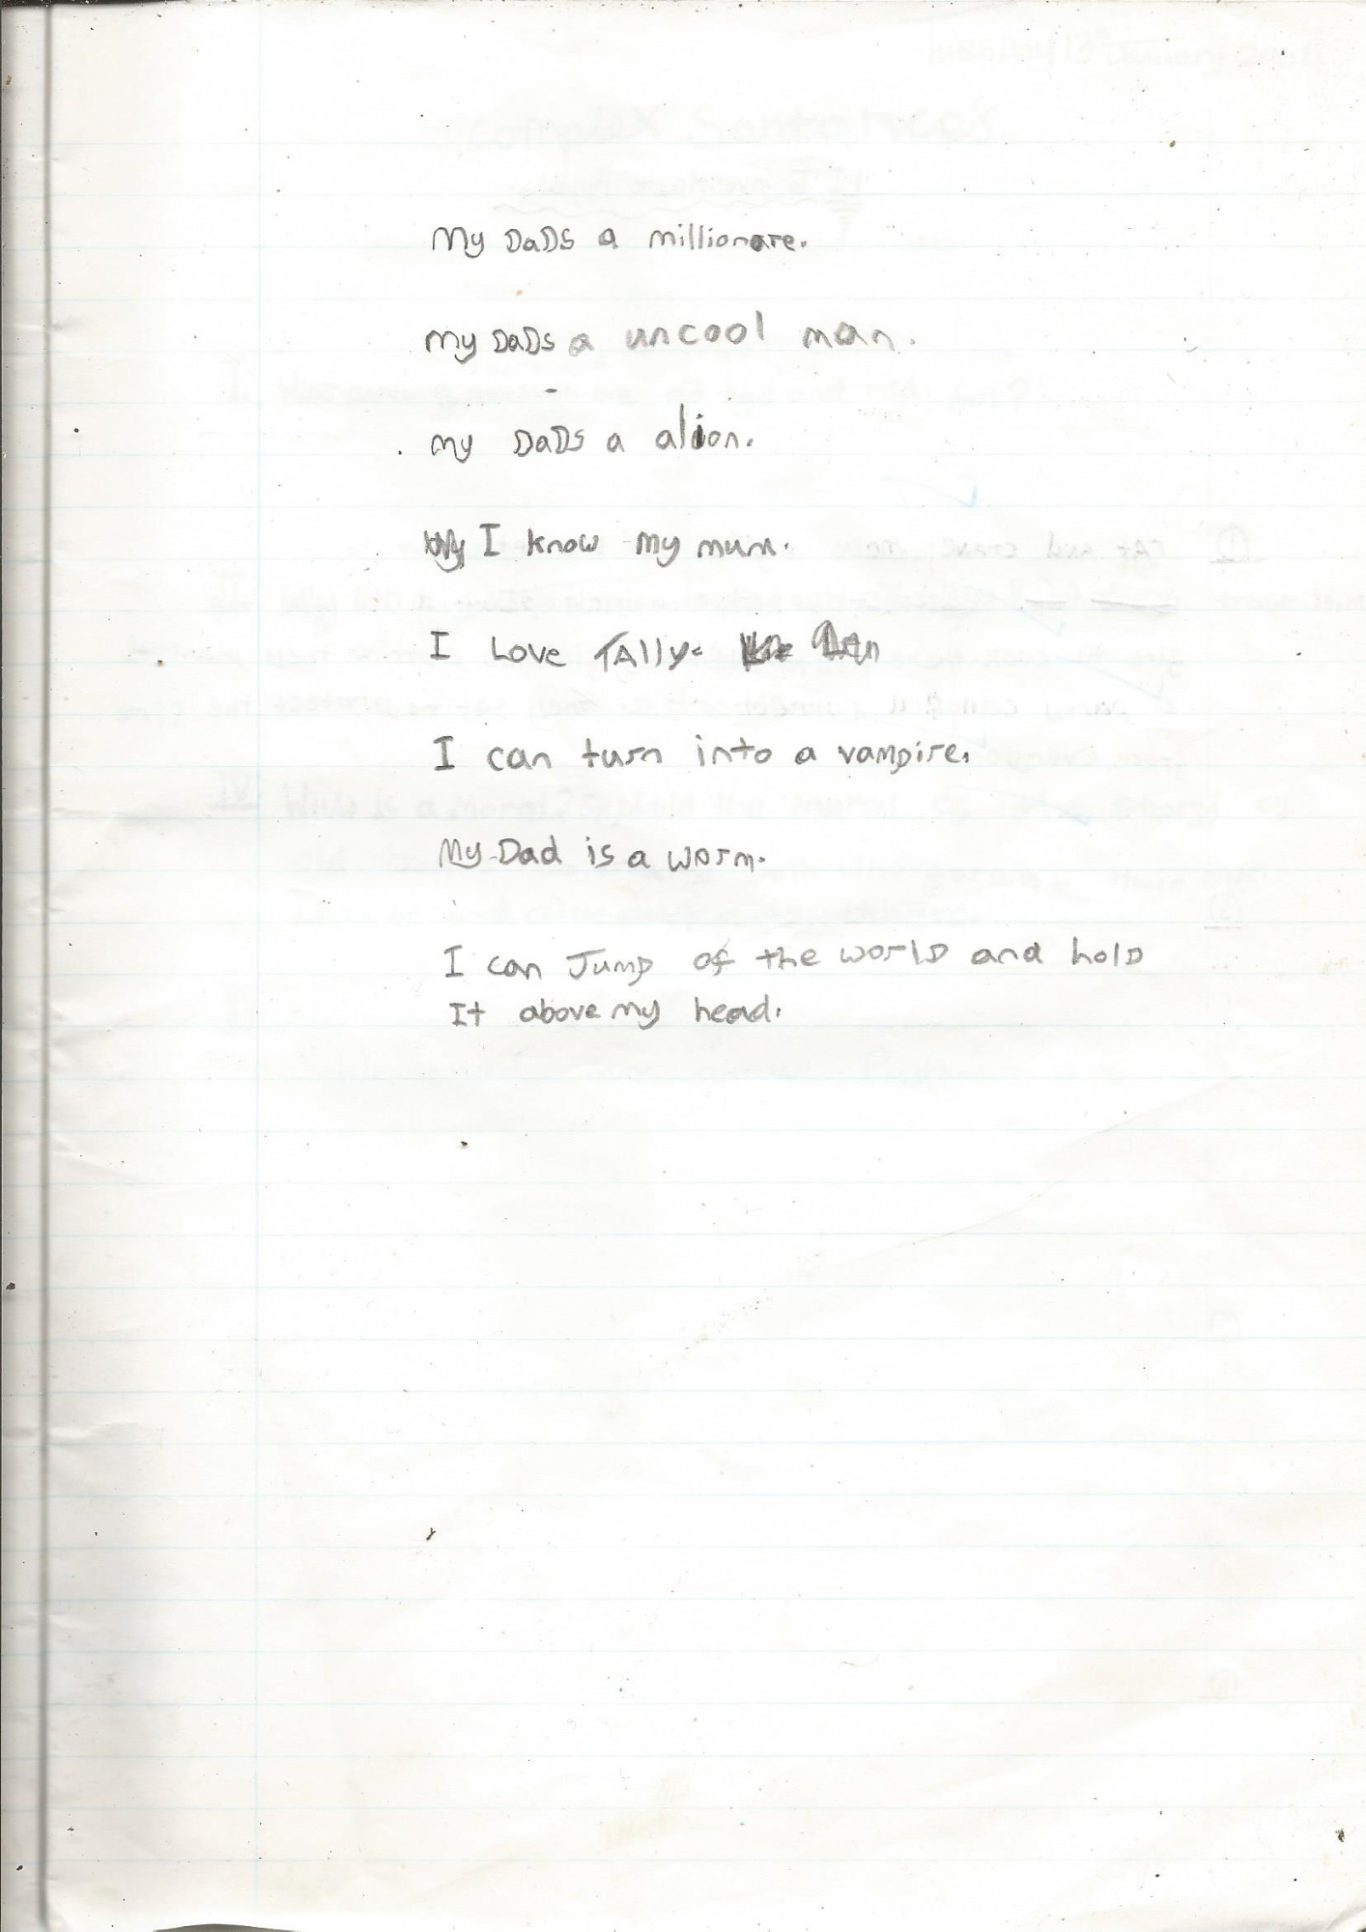 My DaDs a millionare.
My DaDs a uncool man.
My DaDs a alion.
I know my mum.
I Love TAlly.
I can turn into a vampire.
My Dad is a worm.
I can Jump of the world and hold
It above my head.